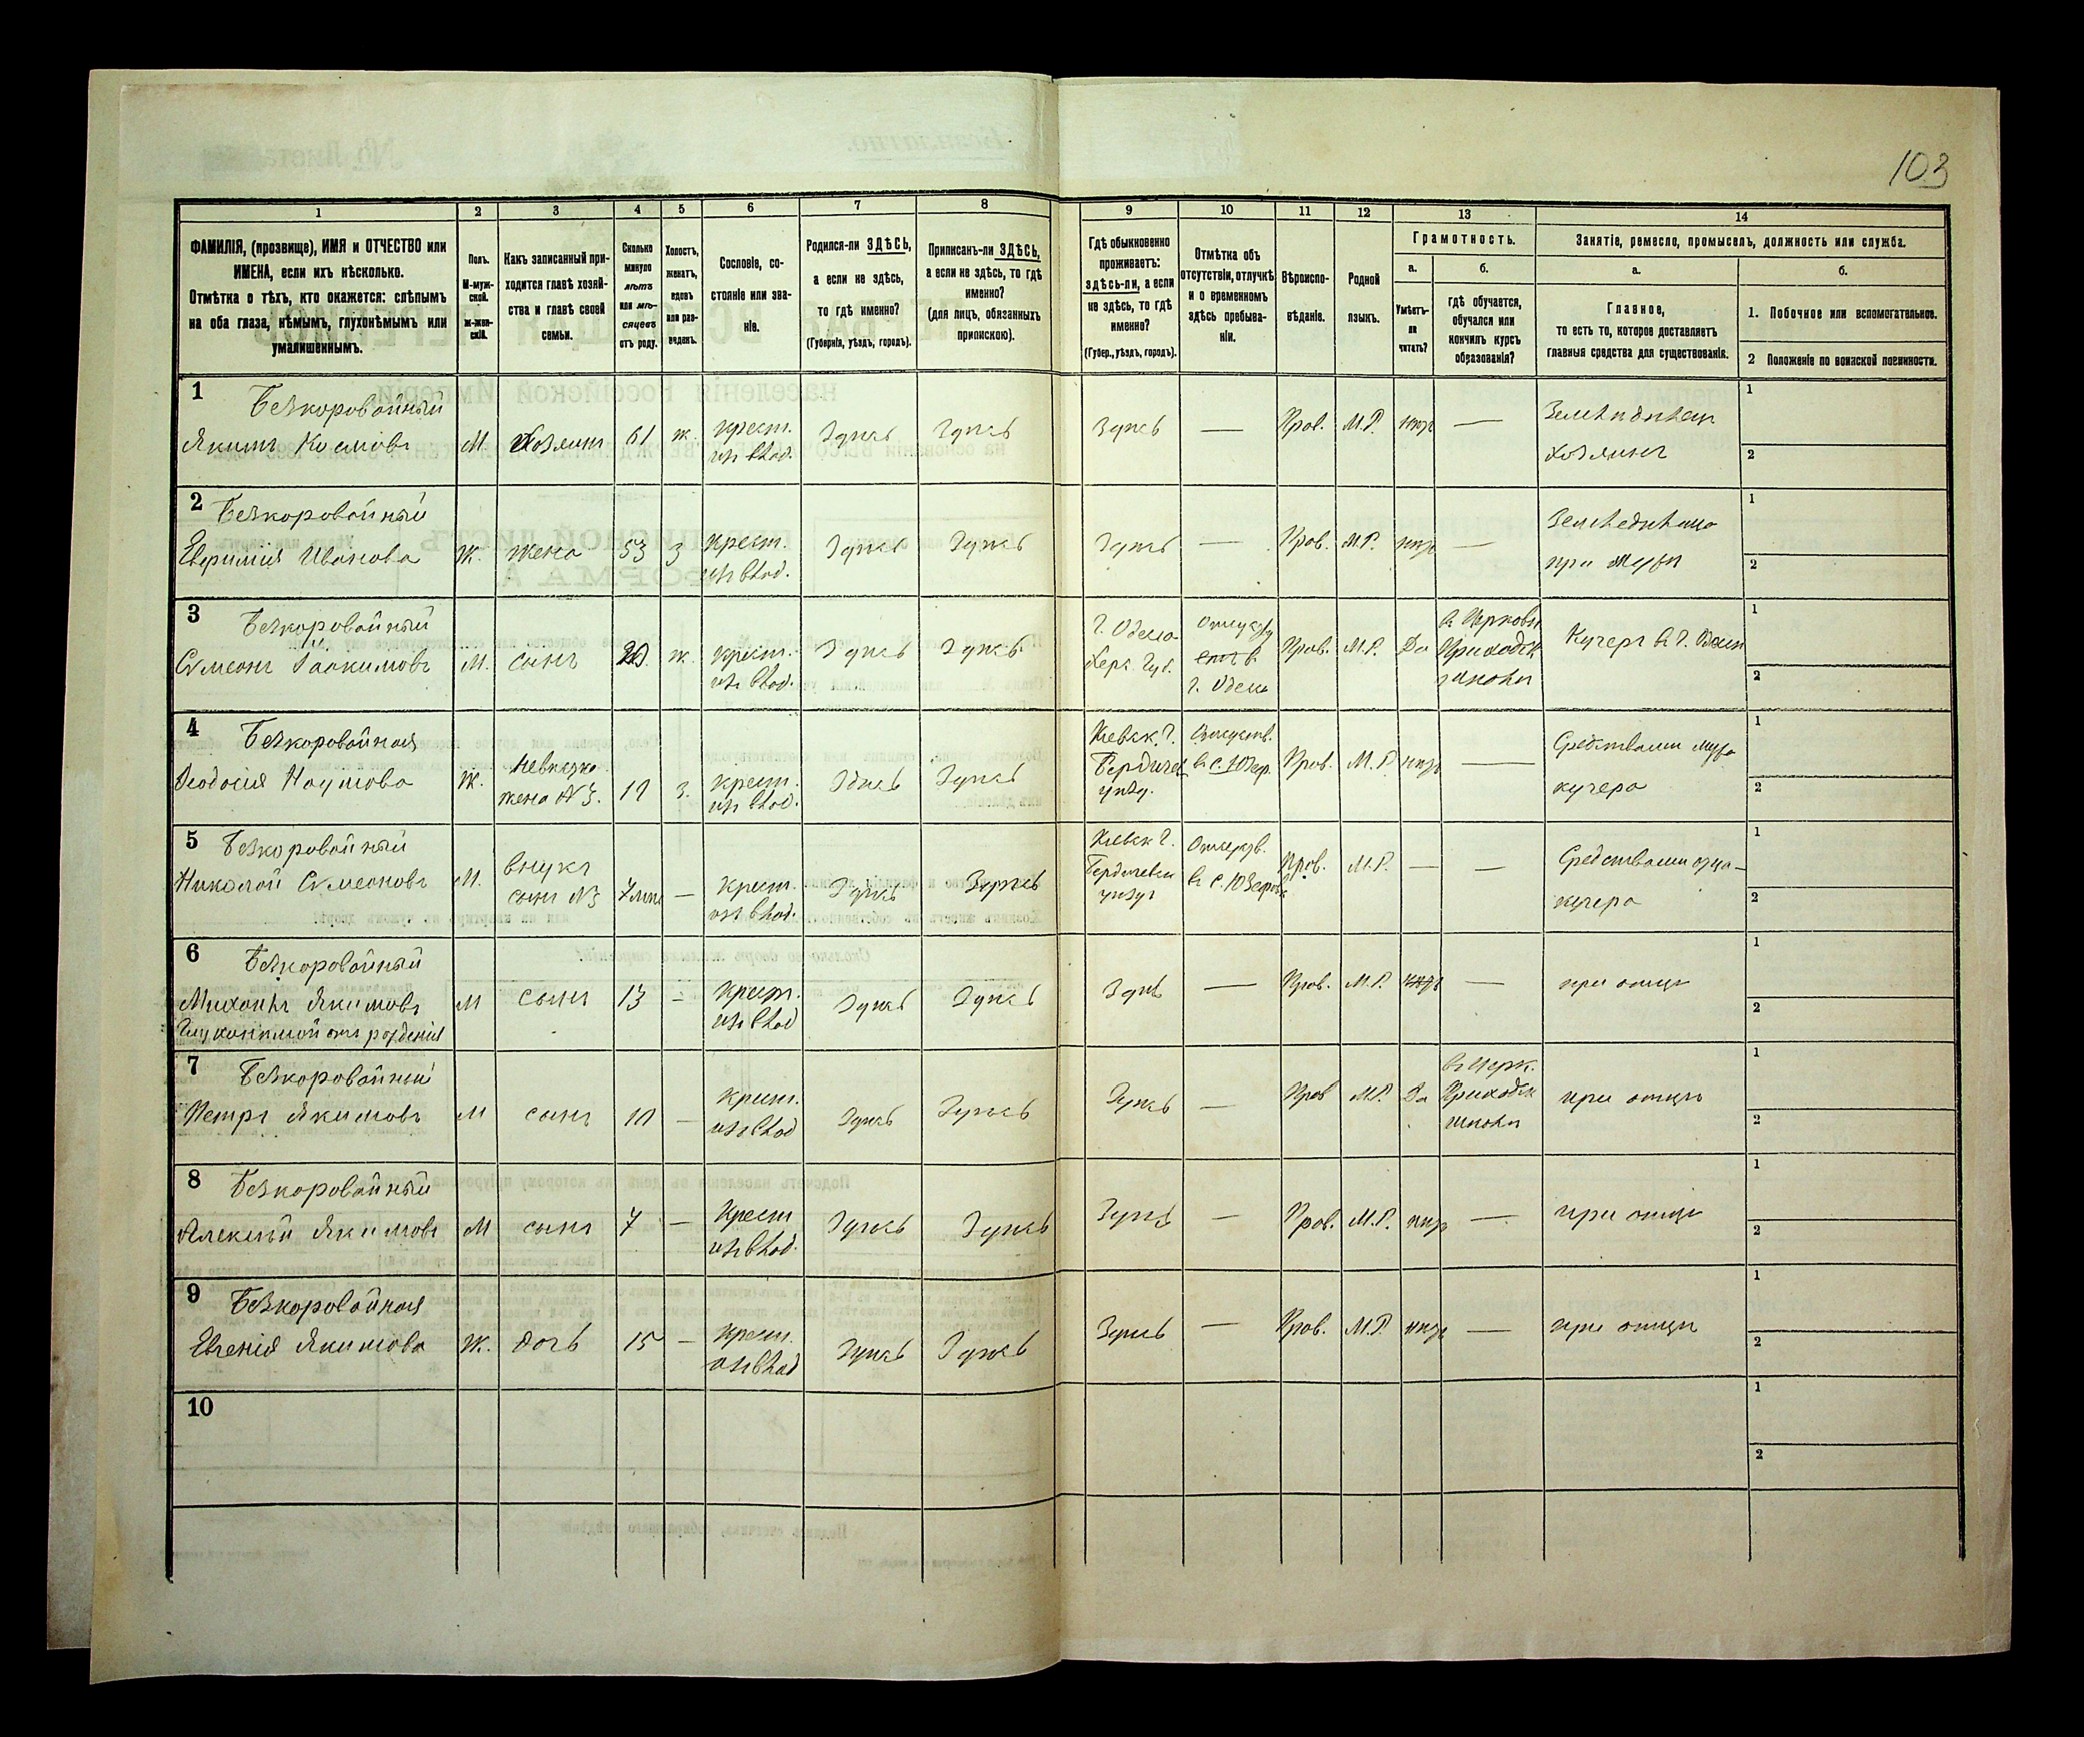 103
1 2 3 4 5 6 7 8 9 10 11 12 13 14
ФАМИЛІЯ, (прозвище), ИМЯ и ОТЧЕСТВО или
ИМЕНА, если ихъ нѣсколько.
Отмѣтка о тѣхъ, кто окажется: слѣпымъ
на оба глаза, нѣмымъ, глухонѣмымъ или
умалишеннымъ.
Полъ.
М-муж-
ской.
ж-жен-
скій.
Какъ записанный при-
ходится главѣ хозяй-
ства и главѣ своей
семьи.
Сколько
минуло
лѣтъ
или мѣ-
сяцевъ
отъ роду.
Холостъ,
женатъ,
вдовъ
или раз-
веденъ.
Сословіе, со-
стояніе или зва-
ніе.
Родился-ли ЗДѢСЬ,
а если не здѣсь,
то гдѣ именно?
(Губернія, уѣздъ, городъ).
Приписанъ-ли ЗДѢСЬ,
а если не здѣсь, то гдѣ
именно?
(для лицъ, обязанныхъ
припискою).
Гдѣ обыкновенно
проживаетъ:
здѣсь-ли, а если
не здѣсь, то гдѣ
именно?
(Губер., уѣздъ, городъ).
Отмѣтка объ
отсутствіи, отлучкѣ
и о временномъ
здѣсь пребыва-
ніи.
Вѣроиспо-
вѣданіе.
Родной
языкъ.
Грамотность.
а.
Умѣетъ-
ли
читать?
б.
гдѣ обучается,
обучался или
кончилъ курсъ
образованія?
Занятіе, ремесло, промыселъ, должность или служба.
а.
Главное,
то есть то, которое доставляетъ
главныя средства для существованія.
б.
1. Побочное или вспомогательное.
2 Положеніе по воинской повинности.
1 Безкоровайный
Якимъ Космовъ М. Хозяинъ 61 ж. крест. Здѣсь Здѣсь Здѣсь — Прав. М.Р. нѣтъ — Земледѣлецъ 1
изъ влад. хозяинъ 2
2 Безкоровайный
Евфимія Иванова Ж. жена 53 з крест. Здѣсь Здѣсь Здѣсь — Прав. М.Р. нѣтъ — Земледѣлица 1
изъ влад. при мужѣ 2
3 Безкоровайный
Симеонъ Іоакимовъ М. сынъ ж. крест. Здѣсь Здѣсь Г. Одесса Прав. М.Р. Да Въ Церковн Кучеръ въ Г. Одессѣ 1
изъ влад. Херс. Губ. г. Одесса Приходск школѣ 2
4 Безкоровайная
Феодосія Наумова Ж. невѣстка 19 з. крест. Здѣсь Здѣсь Кіевск. Г. Прав. М.Р. нѣтъ — Средствами мужа 1
жена №3. изъ влад. Бердичев уѣзд. кучера 2
5 Безкоровайный
Николай Симеоновъ М. внукъ — крест. Здѣсь Здѣсь Кіевск Г. Прав. М.Р. — — Средствами отца— 1
сынъ №3 изъ влад. Бердичевск уѣздъ кучера 2
6 Безкоровайный
Михаилъ Якимовъ М сынъ 13 — крест. Здѣсь Здѣсь Здѣсь — Прав. М.Р. нѣтъ — при отцѣ 1
Глухонѣмой отъ рожденія изъ влад 2
7 Безкоровайный
Петръ Якимовъ М сынъ — крест. Здѣсь Здѣсь Здѣсь — Прав М.Р. Да въ церк. при отцѣ 1
изъ влад Приходск школѣ 2
8 Безкоровайный
Алексѣй Якимовъ М сынъ 7 — крест Здѣсь Здѣсь Здѣсь — Прав. М.Р. нѣтъ — при отцѣ 1
изъ влад. 2
9 Безкоровайная
Евгенія Якимова Ж. дочь 15 — крест. Здѣсь Здѣсь Здѣсь — Прав. М.Р. нѣтъ — при отцѣ 1
изъ влад 2
10 1
2